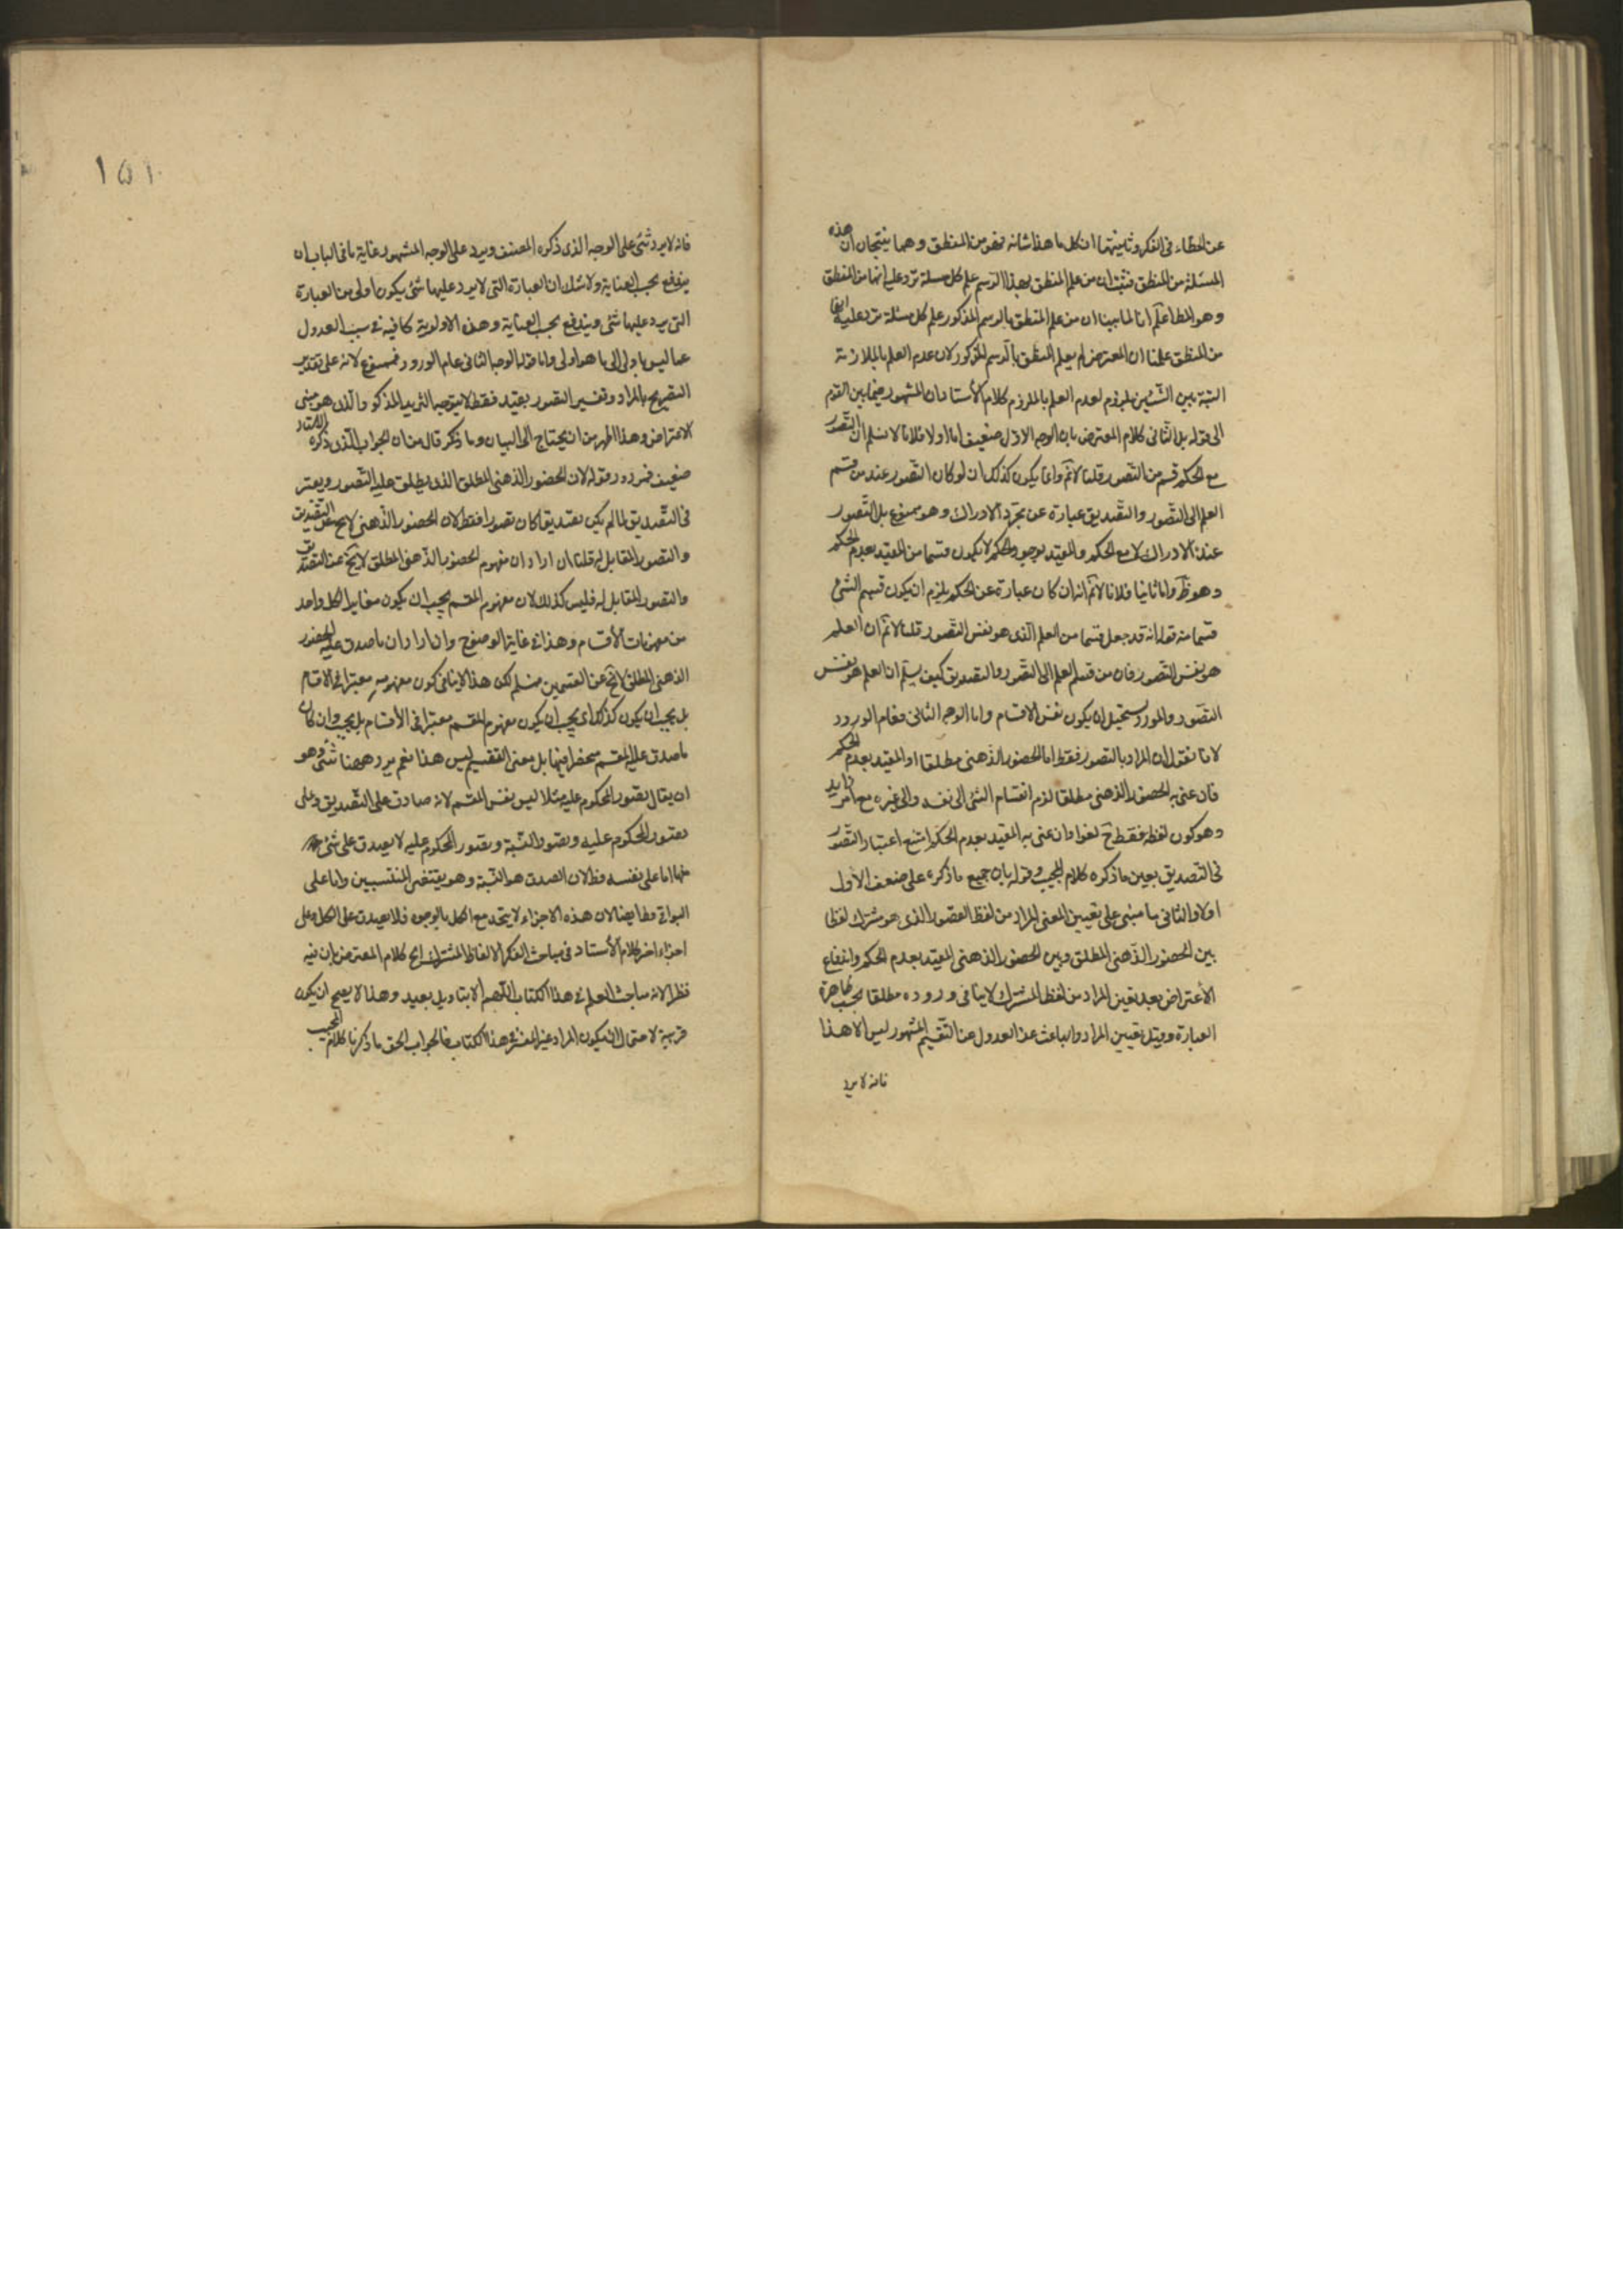 عن الخطاء فى الفكر وثانيتهما ان كل ما هذا شانه فهو من المنطق وهما ينتجان ان هذه
المسئلة من المنطق فثبت ان من علم المنطق بهذا الرسم علم كل مسئلة ترد عليه انها من المنطق
وهو المط اعلم انا لما بينا ان من علم المنطق بالرسم المذكور علم كل مسئلة ترد عليه انها
من المنطق علمنا ان المعترض لم يعلم المنطق بالرسم المذكور لان عدم العلم بالملازمة
البينة بين الشيئين ملزوم لعدم العلم بالملزوم كلام الأستاد ان المشهور فيما بين القوم
الى قوله بل الثانى كلام المعترض بان الوجه الاول ضعيف اما اولا فلانا لا نسلم ان التصور
مع الحكم قسم من التصور قلنا لا نم وانما يكون كذلك ان لو كان التصور عند من قسم
العلم الى التصور والتصديق عبارة عن مجرد الادراك وهو ممنوع بل التصور
عنده الادراك لا مع الحكم والمقيد بوجود الحكم لا يكون قسما من المقيد بعدم الحكم
وهو ظ واما ثانيا فلانا لا نم انه ان كان عبارة عن الحكم يلزم ان يكون قسيم الشئ
قسما منه قوله انه قد جعل قسما من العلم الذى هو نفس التصور قلنا لا نم ان العلم
هو نفس التصور فان من قسم العلم الى التصور والتصديق كيف يسلم ان العلم هو نفس
التصور والمورد يستحيل ان يكون نفس الاقسام واما الوجه الثانى فعام الورود
لانا نقول ان المراد بالتصور فقط اما الحضور الذهنى مطلقا او المقيد بعدم الحكم
فان عنى به الحضور الذهنى مطلقا لزم انقسام الشئ الى نفسه والى غيره مع امر زايد
وهو كون لفظه فقط ح لغوا وان عنى به المقيد بعدم الحكم امتنع اعتبار التصور
فى التصديق بعين ما ذكره كلام المجيب وقوله بان جميع ما ذكره على ضعف الأول
اولا والثانى مبنى على تعيين المعنى المراد من لفظ التصور الذى هو مشترك لفظا
بين الحضور الذهنى المطلق وبين الحضور الذهنى المقيد بعدم الحكم واندفاع
الأعتراض بعد تعين المراد من لفظ المشترك لا ينافى وروده مطلقا بحسب ظاهرة
العبارة وقبل تعيين المراد والباعث عند العدول عن التقسيم المشهور ليس الا هذا
فانه لا يرد
١٥١
فانه لا يرد شئ على الوجه الذى ذكره المصنف ويرد على الوجه المشهور غاية ما فى الباب ان
يندفع بحسب العناية ولا شك ان العبارة التى لا يرد عليها شئ يكون اولى من العبارة
التى يرد عليها شئ ويندفع بحسب العناية وهذه الاولوية كافية فى سبب العدول
عما ليس باولى الى ما هو اولى واما قوله الوجه الثانى عام الورود فممنوع لانه على تقدير
التصريح بالمراد وتفسير التصور بقيد فقط لا يتوجه الترديد المذكور الذى هو مبنى
الاعتراض وهذا اظهر من ان يحتاج الى البيان وما ذكر قال من ان الجواب الذى ذكره الاستاد
ضعيف فمردود قوله لان الحضور الذهنى المطلق الذى يطلق عليه التصور ويعتبر
فى التصديق لما لم يكن تصديقا كان تصورا فقط لان الحضور الذهنى لا يخ عن التصديق
والتصور المقابل له قلنا ان اراد ان مفهوم الحضور الذهنى المطلق لا يخ عن التصديق
والتصور المقابل له فليس كذلك لان مفهوم المقسم يجب ان يكون مغايرا لكل واحد
من مفهومات الأقسام وهذا فى غاية الوضوح وان اراد ان ما صدق عليه الحضور
الذهنى المطلق لا يخ عن القسمين مسلم لكن هذا لا ينافى كون مفهومه معتبرا فى الاقسام
بل يجب ان يكون كذلك اى يجب ان يكون مفهوم المقسم معتبرا فى الأقسام بل يجب وان كان
ما صدق عليه المقسم منحصرا فيها بل معنى التقسيم ليس هذا نعم يرد ههنا شئ وهو
ان يقال تصور المحكوم عليه مثلا ليس نفس المقسم لانه صادق على التصديق وعلى
تصور المحكوم عليه وتصور النسبة وتصور المحكوم عليه لا يصدق على شئ
منها اما على نفسه فظ لان الصدق هو النسبة وهو يقتضى المنتسبين واما على
البواقى فظ ايضا لان هذه الاجزاء لا يتحد مع الكل بالوجود فلا يصدق على الكل وعلى
اجزاء اخر كلام الأستاد فى مباحث الفكر الالفاظ المشترك الخ كلام المعترض بان فيه
نظر لانه مباحث العلم فى هذا الكتاب اللهم الا بتاويل بعيد وهذا لا يصح ان يكون
قرينة لاحتمال ان يكون المراد غير المفسر فى هذا الكتاب فالجواب الحق ما ذكرنا كلام المجيب